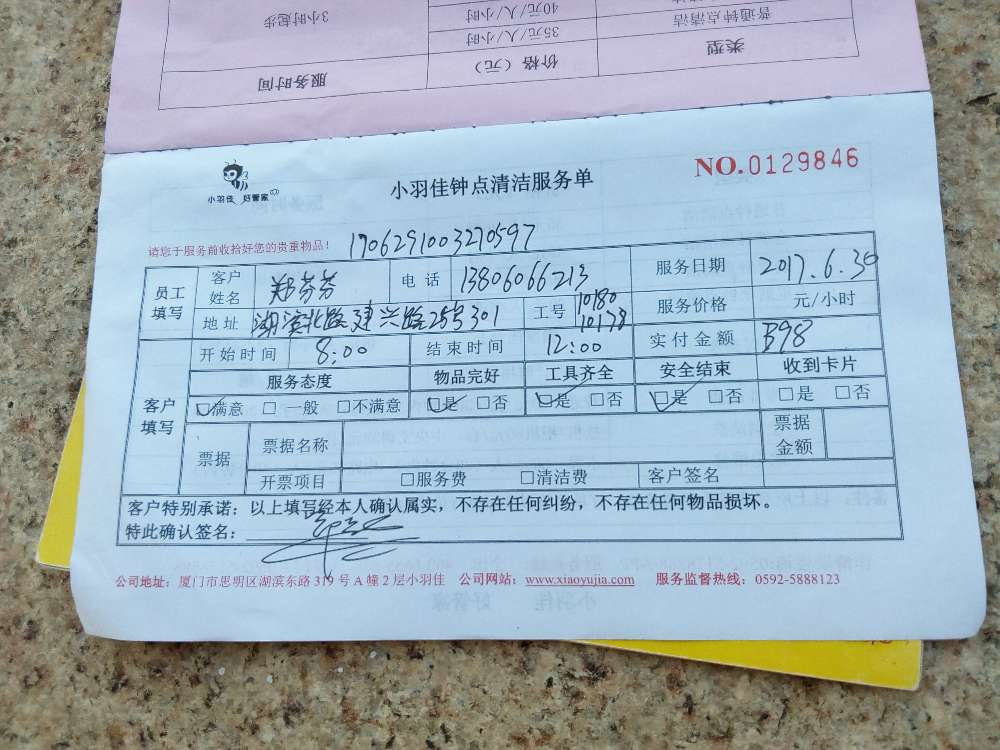 服务时间 价格（元） 类型
3小时起步 35元/人/小时 普通钟点清洁
40元/人/小时
小羽佳 好管家
小羽佳钟点清洁服务单
NO.0129846
请您于服务前收拾好您的贵重物品！ 1706291003270597
员工填写 客户姓名 郑芬芬 电话 13806066213 服务日期 2017.6.30
地址 湖滨北路建兴路25号301 工号 10180 10178 服务价格 元/小时
客户填写 开始时间 8:00 结束时间 12:00 实付金额 B98
服务态度 物品完好 工具齐全 安全结束 收到卡片
☑满意 □一般 □不满意 ☑是 □否 ☑是 □否 ☑是 □否 □是 □否
票据 票据名称 票据金额
开票项目 □服务费 □清洁费 客户签名
客户特别承诺：以上填写经本人确认属实，不存在任何纠纷，不存在任何物品损坏。
特此确认签名：
公司地址：厦门市思明区湖滨东路319号A幢2层小羽佳 公司网站：www.xiaoyujia.com 服务监督热线：0592-5888123